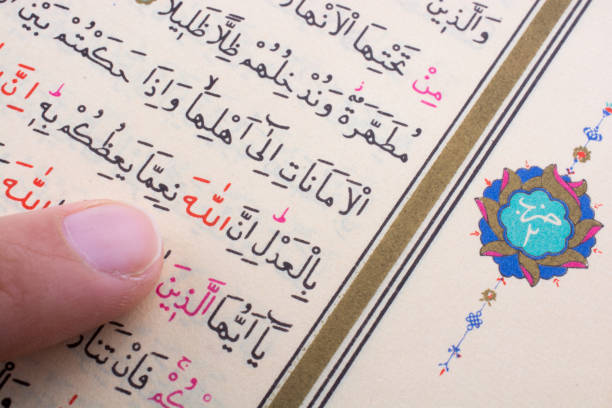 وَالَّذِينَ
مِنْ تَحْتِهَا الْاَنْهَا
مُطَهَّرَةٌ وَنُدْخِلُهُمْ ظِلًّا ظَلِيلًا
الْاَمَانَاتِ اِلٰٓى اَهْلِهَاۙ وَاِذَا حَكَمْتُمْ بَيْنَ
بِالْعَدْلِۜ اِنَّ اللّٰهَ نِعِمَّا يَعِظُكُمْ بِهِۜ اِنَّ
يَٓا اَيُّهَا الَّذِينَ اللّٰهَ
كُمْۚ فَاِنْ تَنَا
حزب
٢